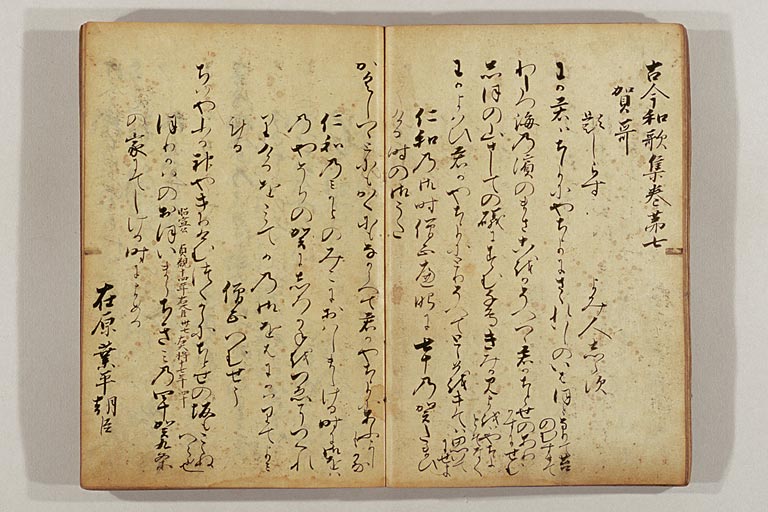 古今和歌集巻第七
賀哥
題しらす　よみ人しらす
わか君はちよにやちよにさゝれいしのいはほとなりて苔
のむすまて
わたつ海の濱のまさこをかそへつゝ君かちとせのあり
かすにせむ
しほの山さしての磯にすむ千鳥きみかみよをはやちよ
とそなく
わかよはひ君かやちよにとりそへてとゝめをきてはおもひいて
にせよ
仁和の御時僧正遍昭に七十の賀たまひ
ける時の御うた
かくしつゝとにもかくにもなからへて君かやちよにあふよし
もかな
仁和のみかとのみこにおはしましける時に御をは
のやそちの賀にしろかねをつゑにつくれ
りけるをみてかの御をはにかはりてよみ
ける
僧正へんせう
ちはやふる神やきりけむつくからにちとせの坂もこえぬ
へら也
ほりかはのおほいまうちきみの四十賀九条
の家にてしける時によめる
在原業平朝臣